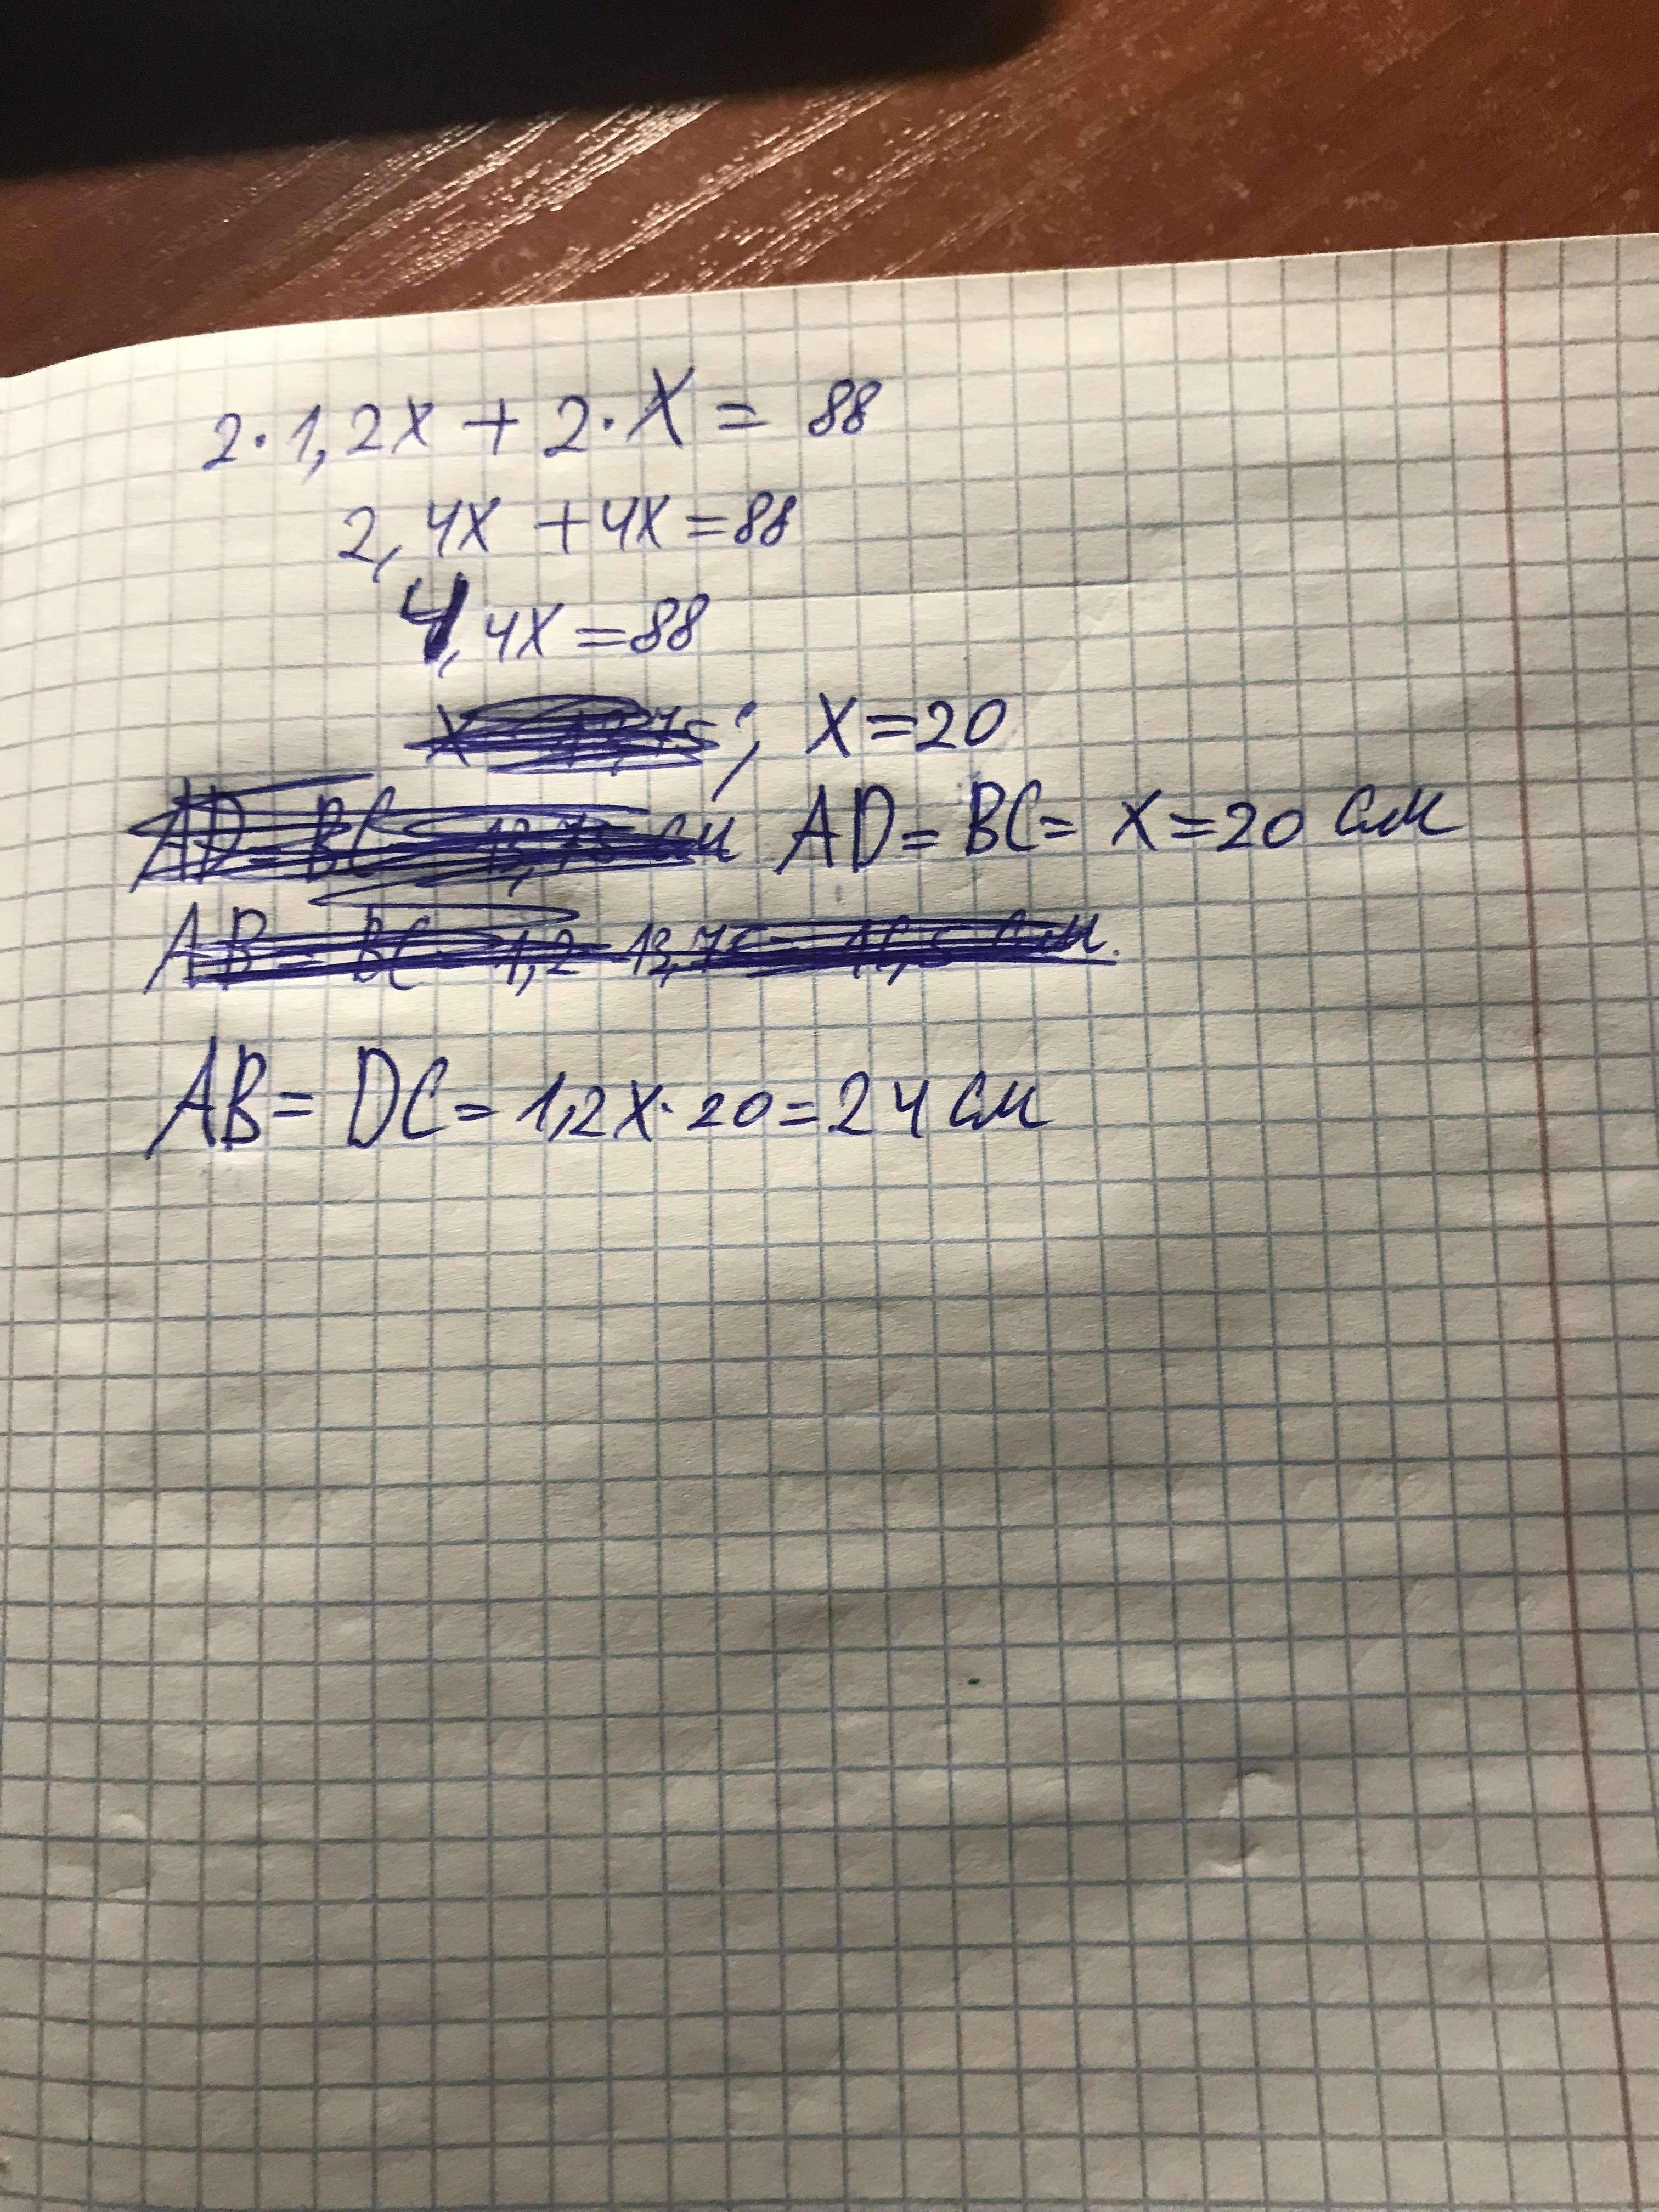 2·1,2x + 2·x = 88
2,4x + 4x = 88
4,4x = 88
; x = 20
AD = BC = x = 20 см
AB = DC = 1,2x·20 = 24 см